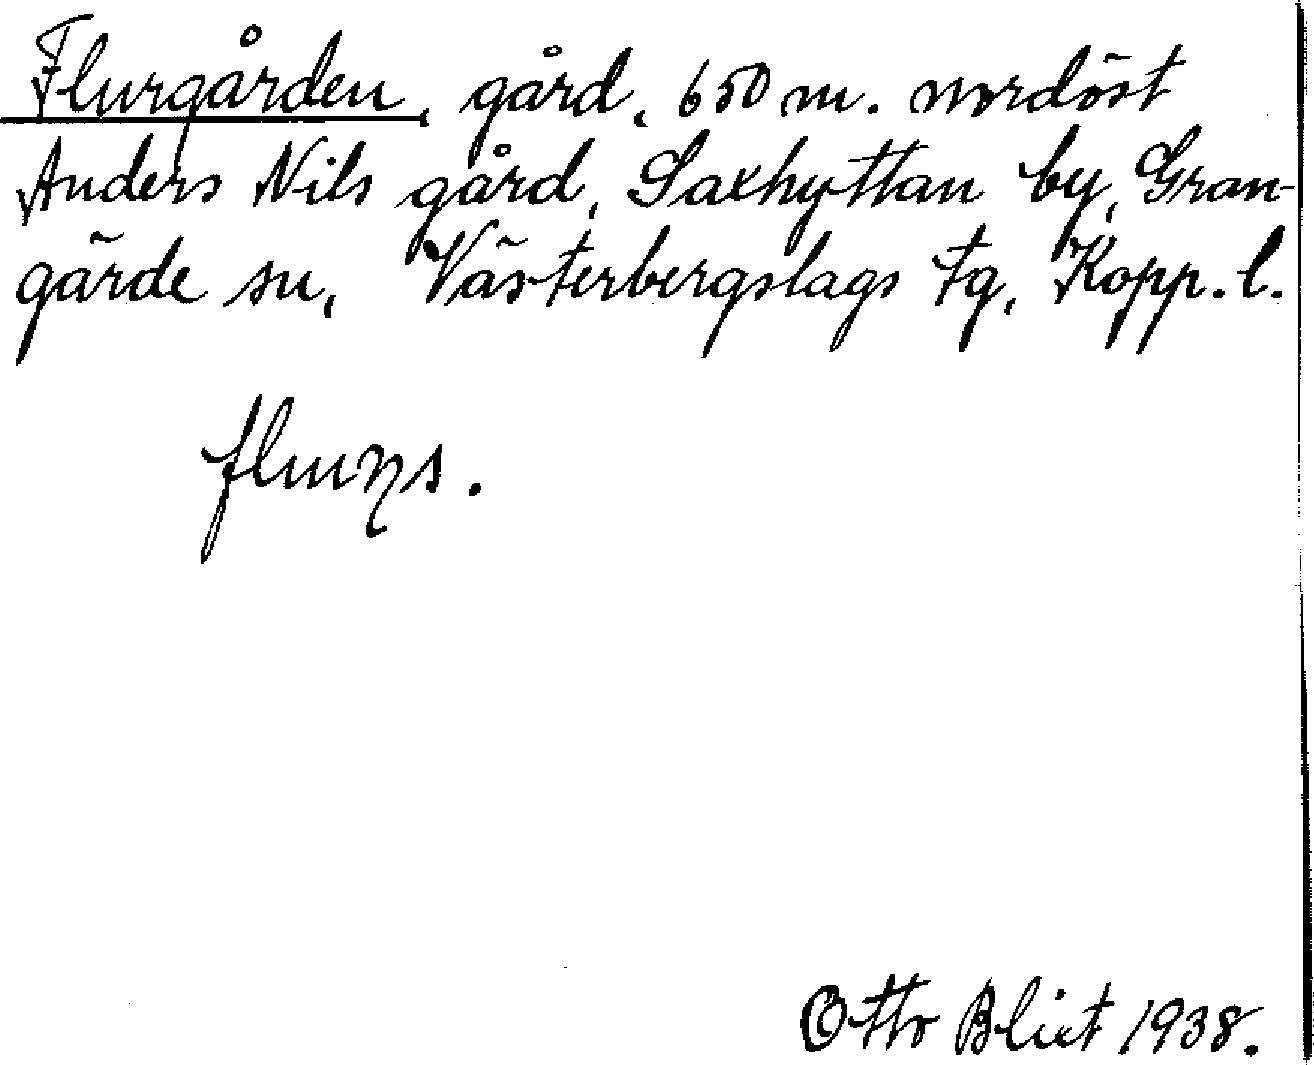 Flurgården, gård, 650 m. nordöst
Anders Nils gård, Saxhyttan by, Gran-
gärde sn, Västerbergslags fg, Kopp. l.
Otto Blixt 1938.